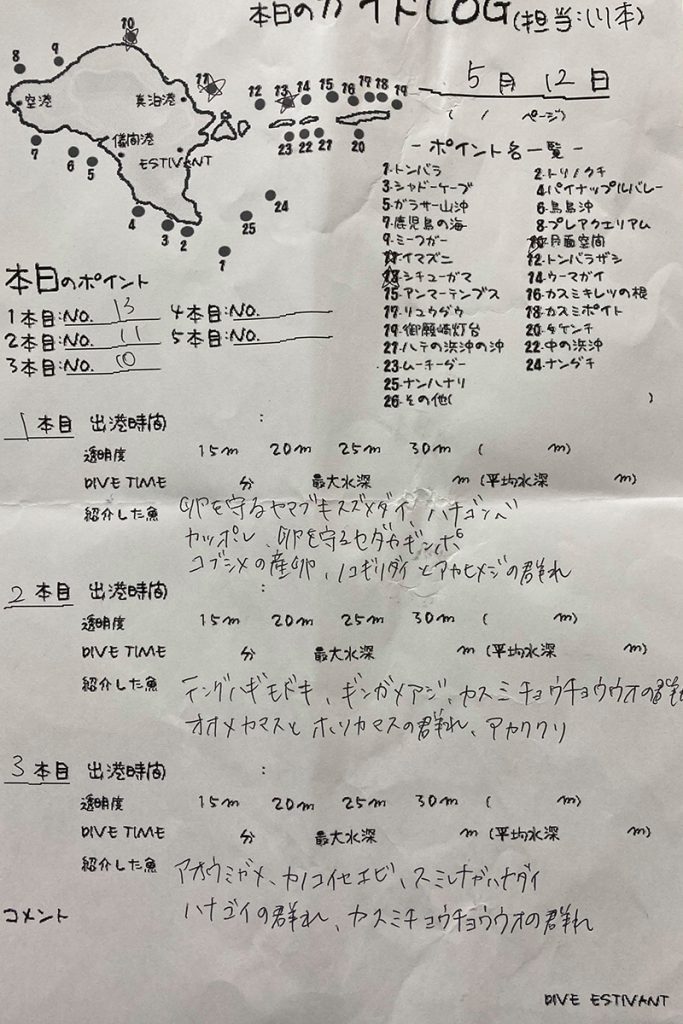 本日のガイドLOG(担当:川本)
5月 12日
( / ページ)
10
9
8
11
12 13 14 15 16 17 18 19
空港
真泊港
儀間港
ESTIVANT
7
6
5
23 22 21
20
24
25
4
3
2
1
- ポイント名一覧 -
1.トンバラ 2.トリノクチ
3.シャドーケーブ 4.パイナップルバレー
5.ガラサー山沖 6.鳥島沖
7.鹿児島の海 8.プレアクエリアム
9.ミーフガー 10.月面空間
11.イマズニ 12.トンバラザシ
13.シチューガマ 14.ウーマガイ
15.アンマーテンプス 16.カスミキレツの根
17.リュウグウ 18.カスミポイント
19.御願崎灯台
21.ハテの浜沖の沖 22.中の浜沖
23.ムーチーダー 24.ナングチ
25.ナンハナリ
26.その他( )
本日のポイント
1本目:NO. 13 4本目:NO.
2本目:NO. 11 5本目:NO.
3本目:NO. 10
1本目 出港時間 :
透明度 15m 20m 25m 30m ( m)
DIVE TIME 分 最大水深 m (平均水深 m)
紹介した魚 卵を守るヤマブキスズメダイ、ハナゴンベ
カッポレ、卵を守るセダカギンポ
コブシメの産卵、ノコギリダイとアカヒメジの群れ
2本目 出港時間 :
透明度 15m 20m 25m 30m ( m)
DIVE TIME 分 最大水深 m (平均水深 m)
紹介した魚 テングハギモドキ、ギンガメアジ、カスミチョウチョウウオの群れ
オオメカマスとホソカマスの群れ、アカククリ
3本目 出港時間 :
透明度 15m 20m 25m 30m ( m)
DIVE TIME 分 最大水深 m (平均水深 m)
紹介した魚 アオウミガメ、カノコイセエビ、スミレナガハナダイ
コメント ハナゴイの群れ、カスミチョウチョウウオの群れ
DIVE ESTIVANT